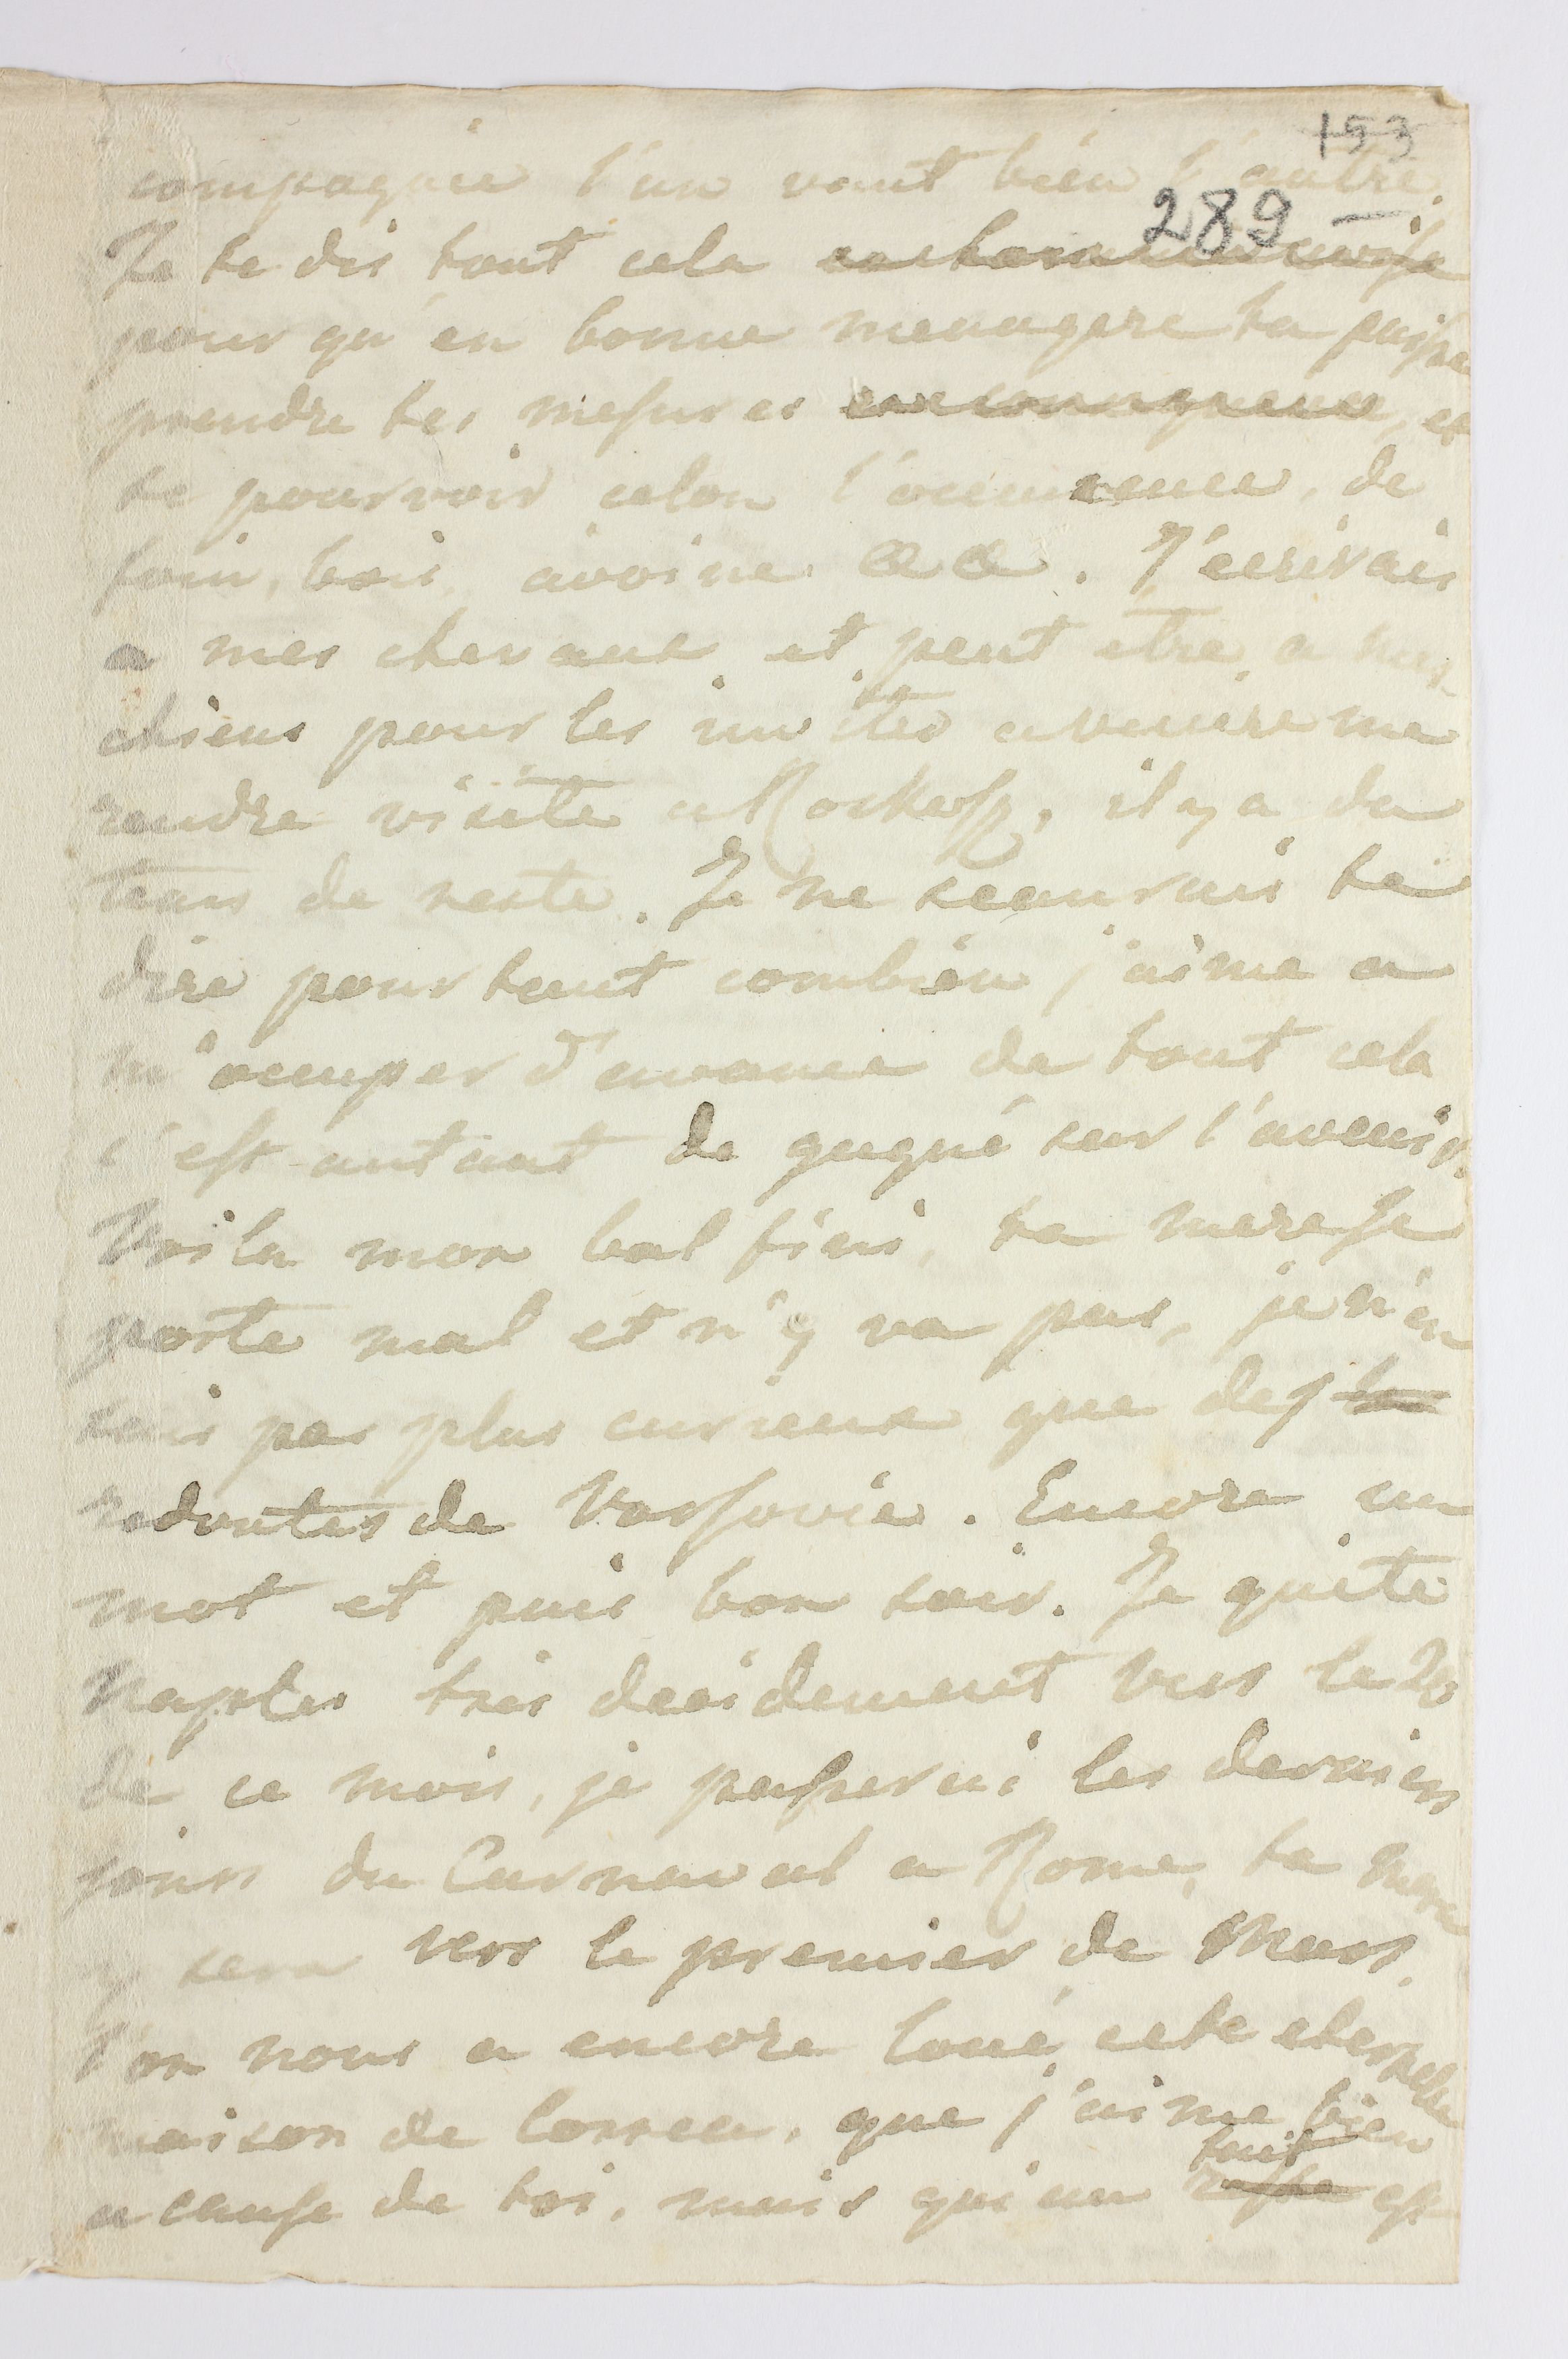 153
compagnie l'un vaut bien l'autre.
289 –
Je te dis tout cela
pour qu'en bonne menagere tu puisse
prendre tes mesures en consequence, et
te pourvoir celon l'occurence, de
foin, bois, avoine &c &c. J'écrirais
a mes chevaux et peut etre a mes
chiens pour les inviter a venire me
rendre visite a Roskosz, il y a du
tems de reste. Je ne scaurais te
dire pourtant combien j'aime a
m'ocuper d'avance de tout cela
c'est autant de gagné sur l'avenir.
Voila mon bal fini, ta mere se
porte mal et n'y va pas, je n'en
suis pas plus curieux que des la
redoutes de Varsovie. Encore un
mot et puis bon soir. Je quite
Naples tres decidement vers le 20
de ce mois, je passerai les derniers
jours du Carnaval a Rome, ta mere
y sera vers le premier de Mars.
l'on nous a encore loué cete eternelle
maison de Correa, que j'aime bien
tout
a cause de toi, mais qui au reste est